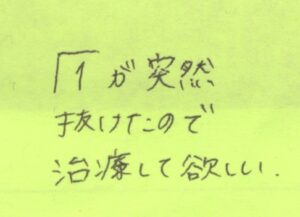 「1が突然
抜けたので
治療して欲しい.